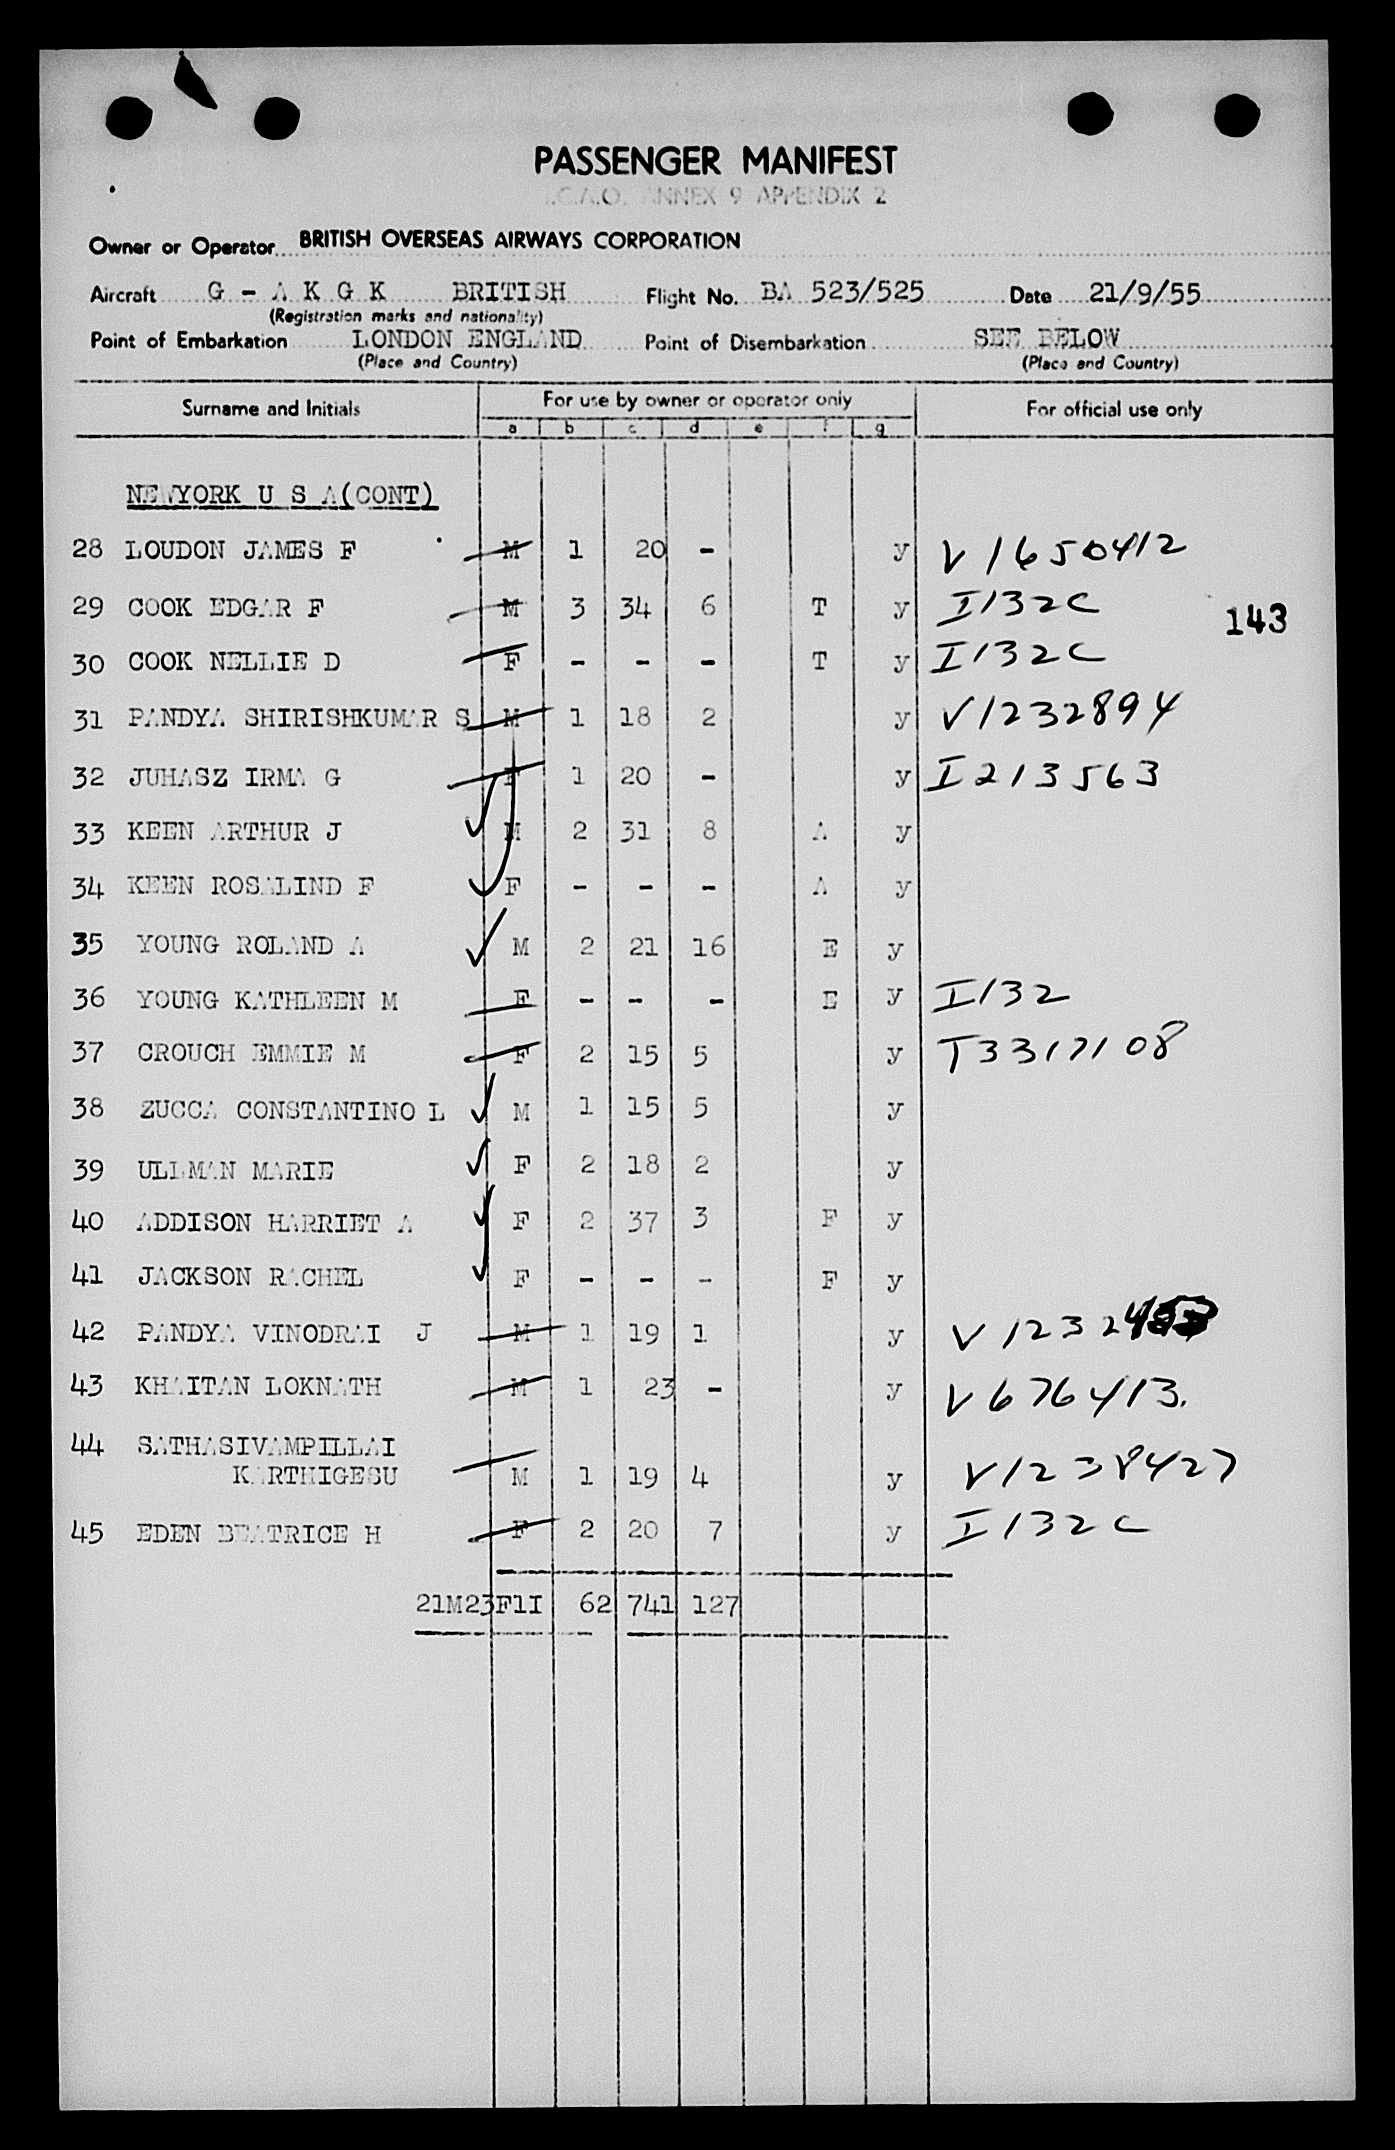 PASSENGER MANIFEST
I.C.A.O. ANNEX 9 APPENDIX 2
Owner or Operator BRITISH OVERSEAS AIRWAYS CORPORATION
Aircraft G - A K G K BRITISH Flight No. BA 523/525 Date 21/9/55
(Registration marks and nationality)
Point of Embarkation LONDON ENGLAND Point of Disembarkation SEE BELOW
(Place and Country) (Place and Country)
Surname and Initials For use by owner or operator only For official use only
a b c d e f g
NEWYORK U S A(CONT)
28 LOUDON JAMES F M 1 20 - y V1650412
29 COOK EDGAR F M 3 34 6 T y I132C
143
30 COOK NELLIE D F - - - T y I132C
31 PANDYA SHIRISHKUMAR S M 1 18 2 y V1232894
32 JUHASZ IRMA G F 1 20 - y I213563
33 KEEN ARTHUR J M 2 31 8 A y
34 KEEN ROSALIND F F - - - A y
35 YOUNG ROLAND A M 2 21 16 E y
36 YOUNG KATHLEEN M F - - - E y I132
37 CROUCH EMMIE M F 2 15 5 y T3317108
38 ZUCCA CONSTANTINO L M 1 15 5 y
39 ULLMAN MARIE F 2 18 2 y
40 ADDISON HARRIET A F 2 37 3 F y
41 JACKSON RACHEL F - - - F y
42 PANDYA VINODRAI J M 1 19 1 y
43 KHAITAN LOKNATH M 1 23 - y V676413.
44 SATHASIVAMPILLAI
KARTHIGESU M 1 19 4 y V1238427
45 EDEN BEATRICE H F 2 20 7 y I132C
21M23F1I 62 741 127